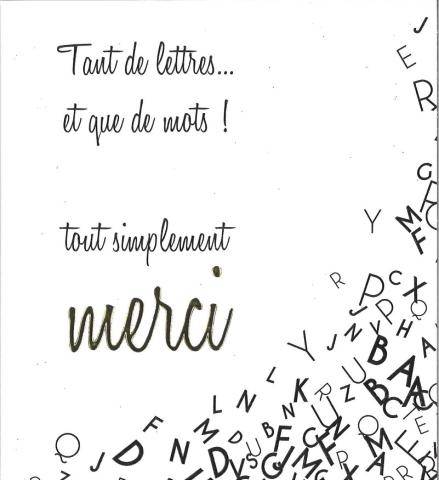 Tant de lettres...
et que de mots !
tout simplement
merci